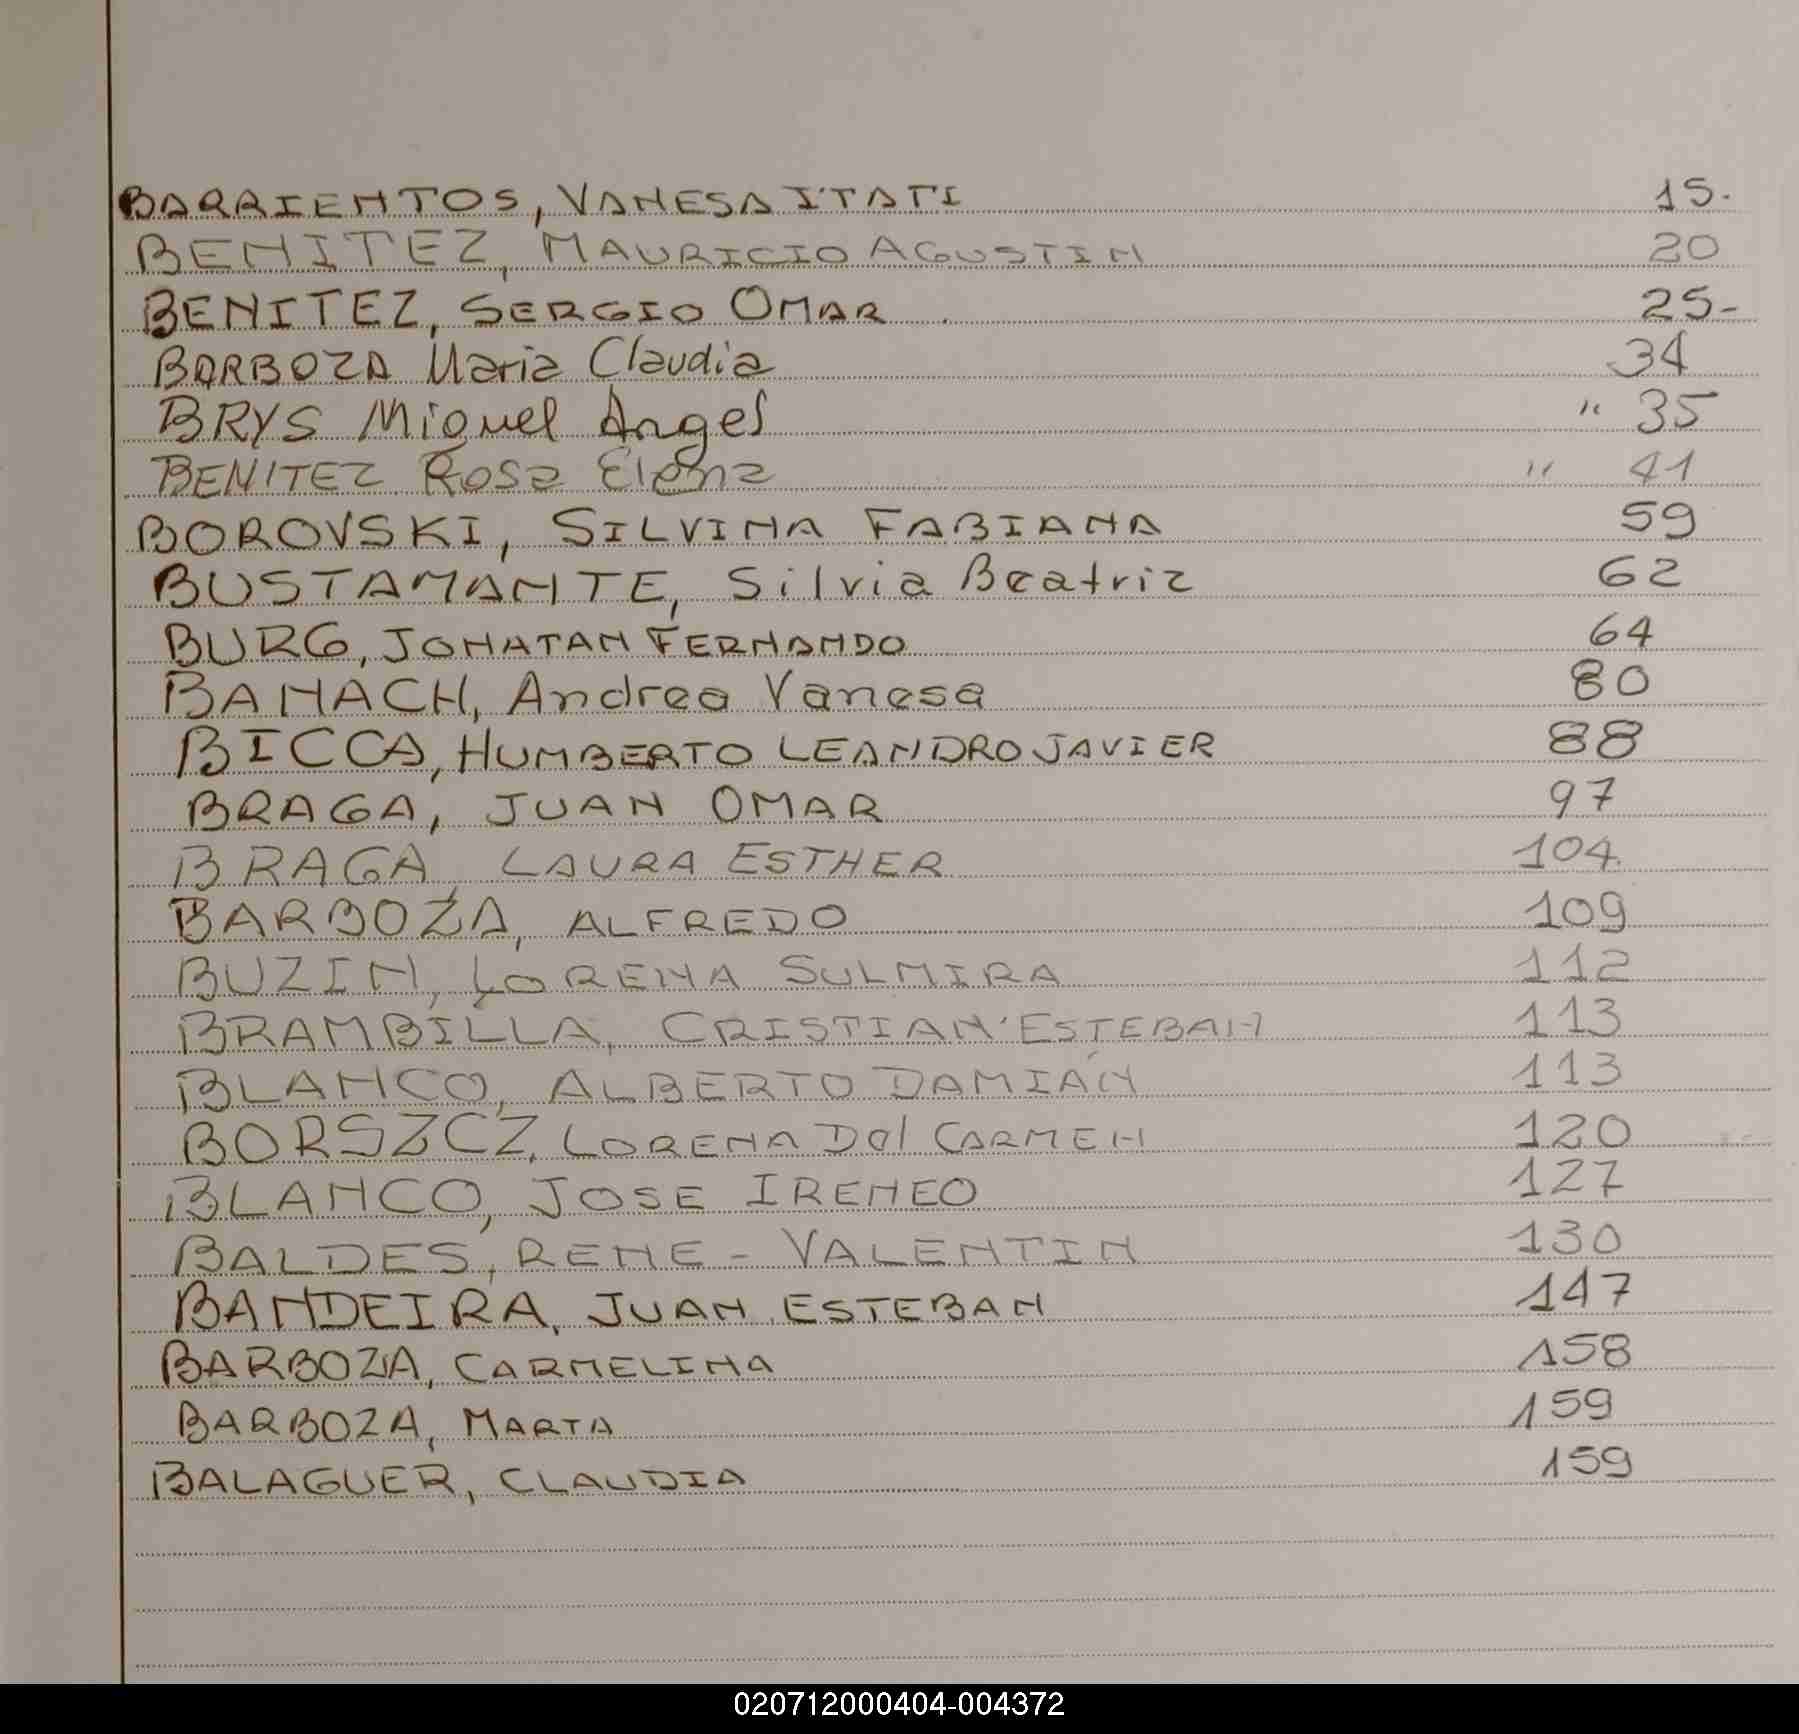 BARRIENTOS, VANESA ITATI 15.
BENITEZ, MAURICIO AGUSTIN 20
BENITEZ, SERGIO OMAR 25-
BARBOZA Maria Claudia 34
BRYS Miguel Angel " 35
BENITEZ Rosa Elena " 41
BOROVSKI, SILVINA FABIANA 59
BUSTAMANTE, Silvia Beatriz 62
BURG, JONATAN FERNANDO 64
BANACH, Andrea Vanesa 80
BICCA, HUMBERTO LEANDRO JAVIER 88
BRAGA, JUAN OMAR 97
BRAGA, LAURA ESTHER 104.
BARBOZA, ALFREDO 109
BUZIN, LORENA SULMIRA 112
BRAMBILLA, CRISTIAN ESTEBAN 113
BLANCO, ALBERTO DAMIÁN 113
BORSZCZ, LORENA Del CARMEN 120
BLANCO, JOSE IRENEO 127
BALDES, RENE - VALENTIN 130
BANDEIRA, JUAN ESTEBAN 147
BARBOZA, CARMELINA 158
BARBOZA, MARTA 159
BALAGUER, CLAUDIA 159
020712000404-004372